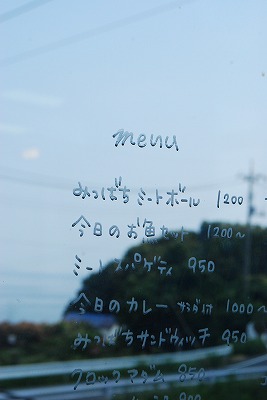 menu
みつばち ミートボール 1200
今日のお魚セット 1200〜
ミートスパゲティ 950
今日のカレー サラダ付 1000〜
みつばちサンドウィッチ 950
クロックマダム 850